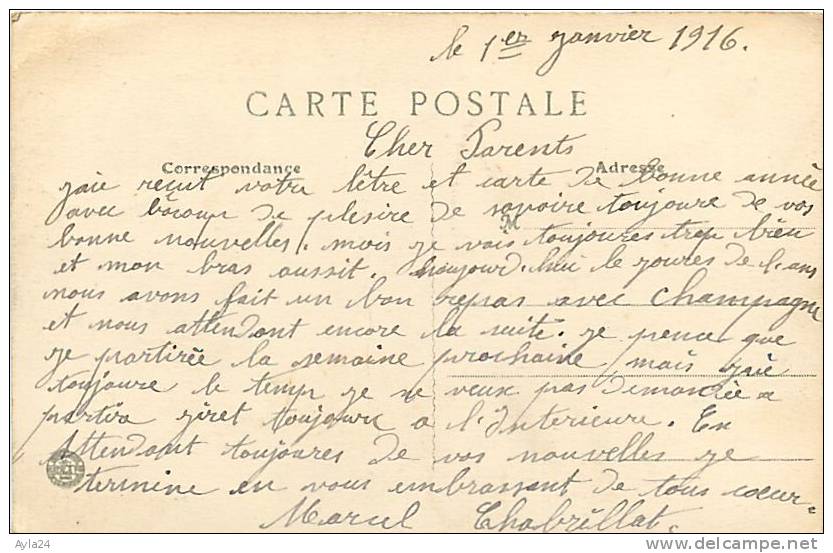 le 1er janvier 1916.
CARTE POSTALE
Cher Parents
Correspondance
Adresse
jaie recut votre lêtre et carte de bonne année
avec bocoup de plesire de savoire toujoure de vos
M
bonne nouvelles. mois je vais toujoures trep bien
et mon bras aussit. houjourd.hui le joures de l.ans
nous avons fait un bon repas avec champagne
et nous attendont encore la suite. je pence que
je partirée la semaine prochaine, mais jaie
toujoure le temp je ne veux pas demandée a
partire jiret toujoure a l'Interieure. En
Attendont toujoures de vos nouvelles je
termine en vous embrassent de tous coeur.
Marcel Chabrillat.
Ayla24
delcampe.net